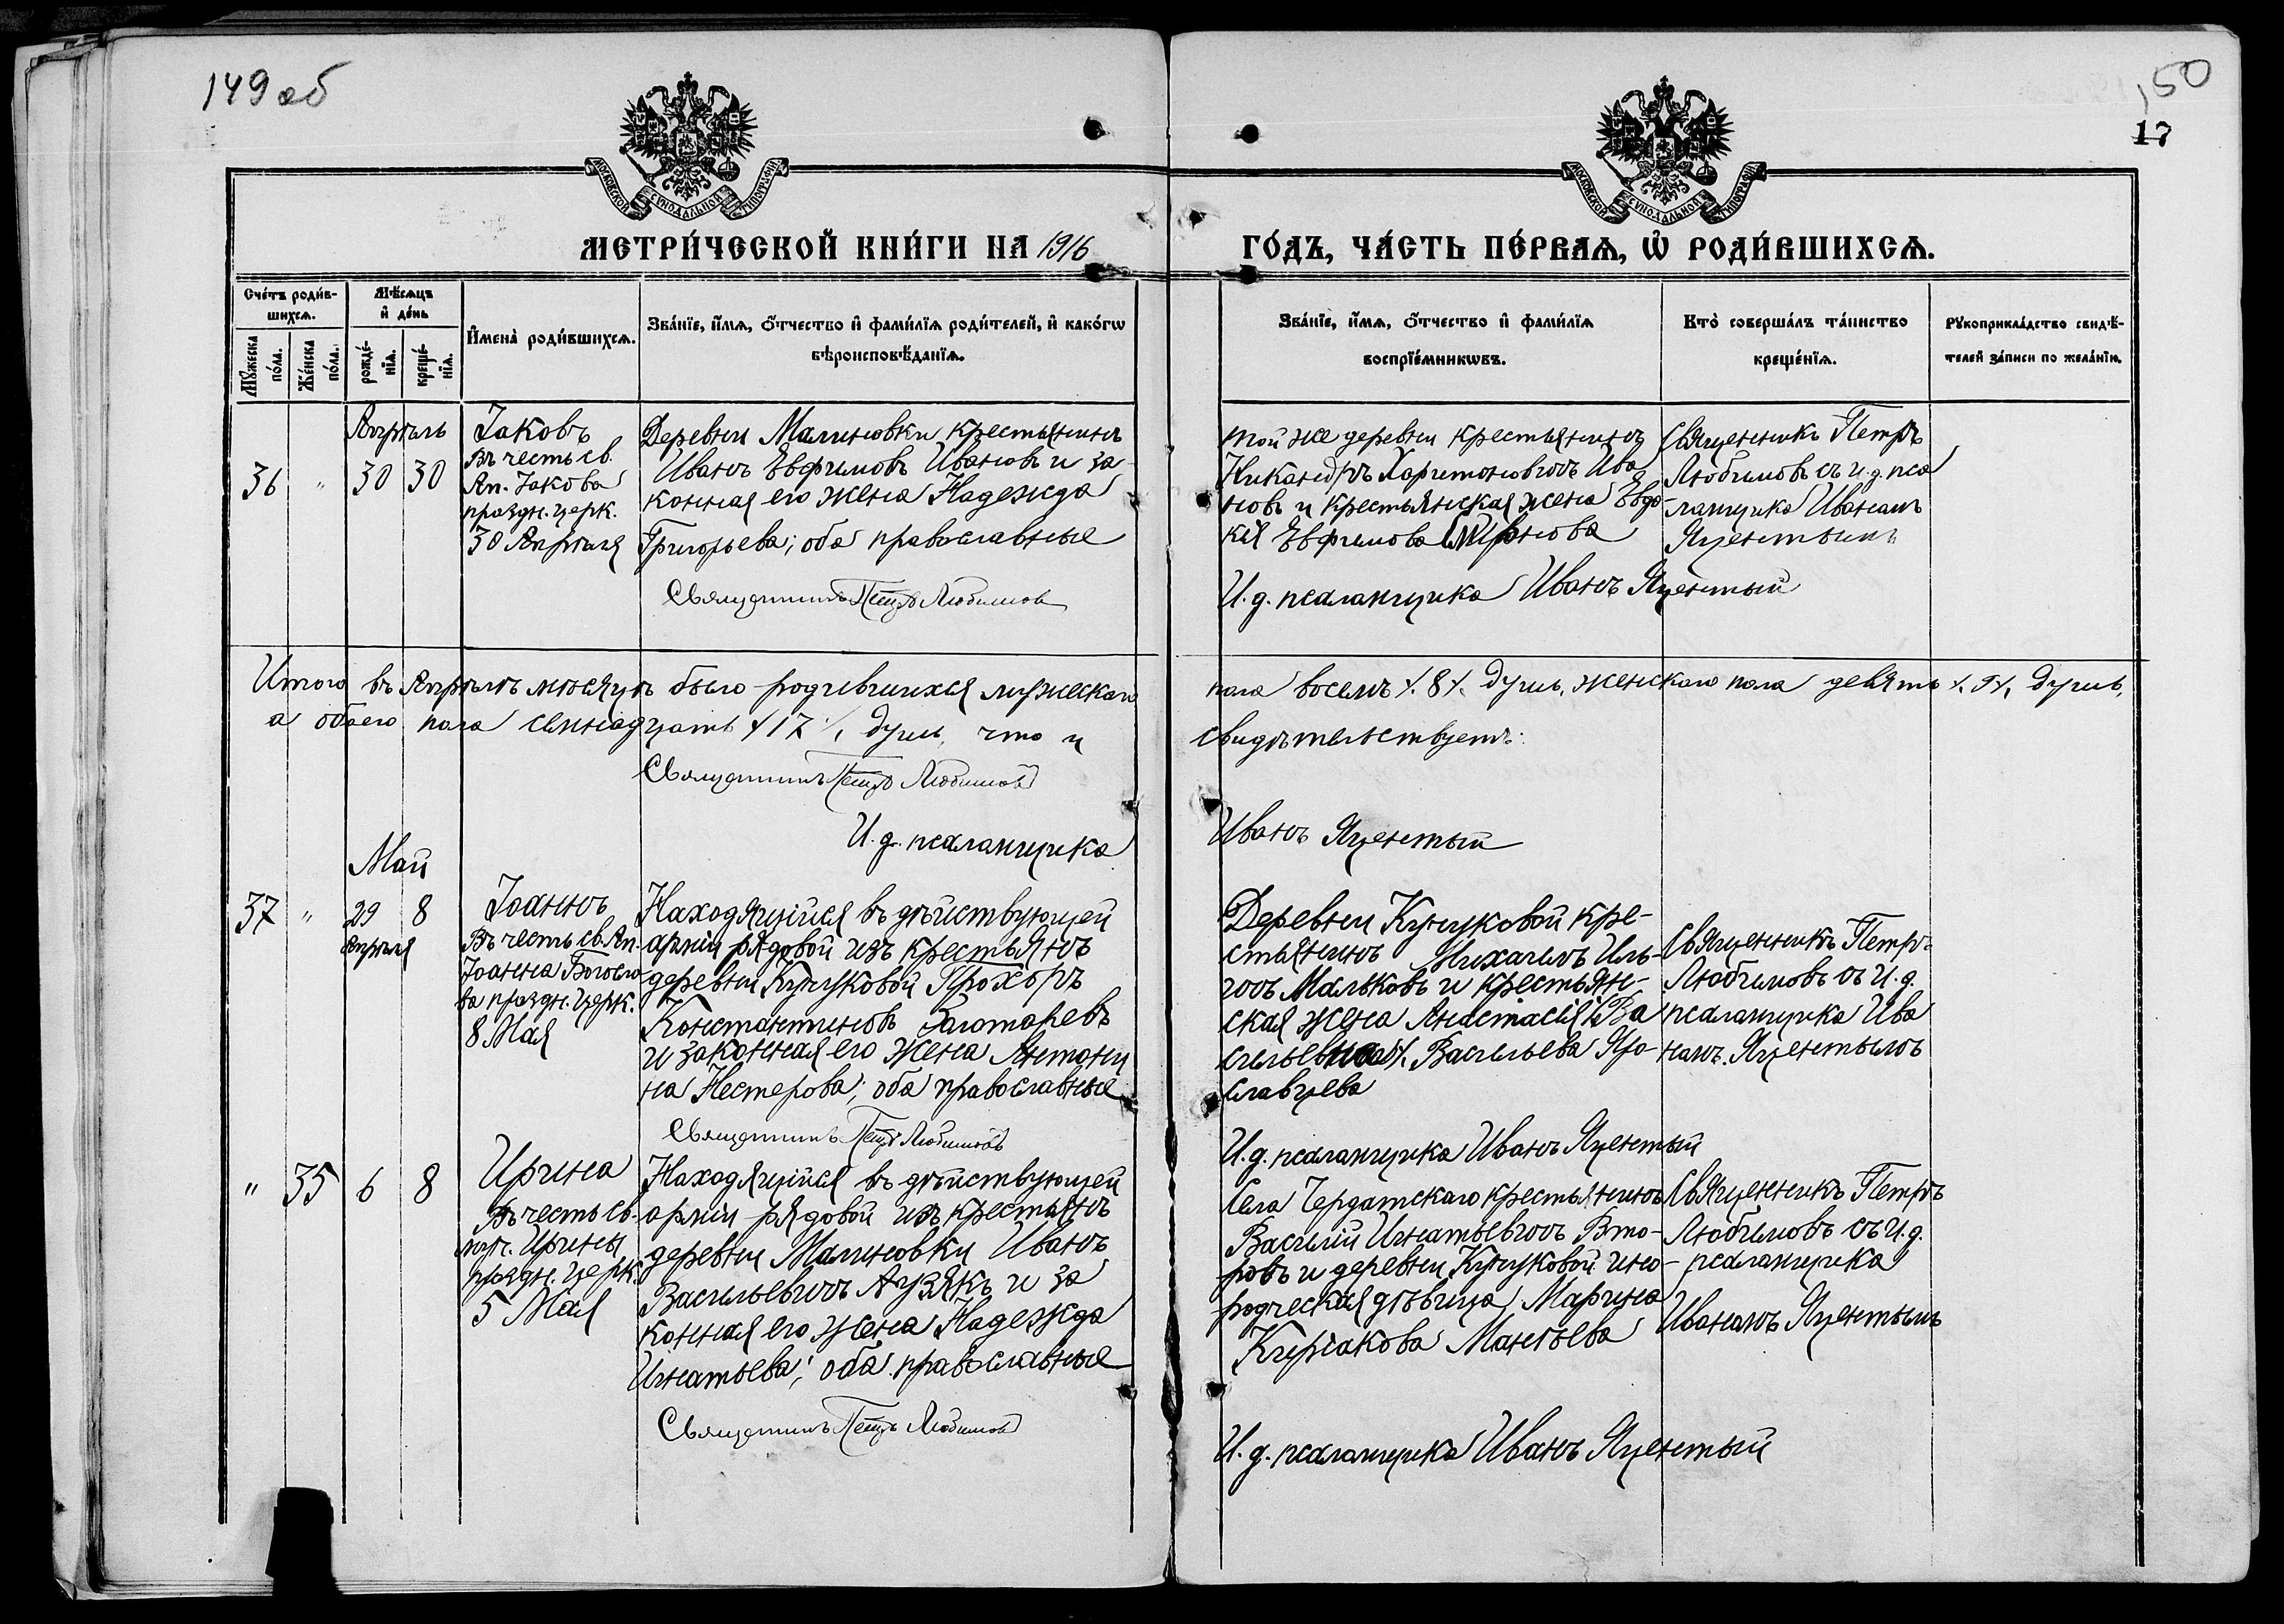 149 об
150
17
МОСКОВСКОЙ СѴНОДАЛЬНОЙ ТИПОГРАФІИ
МОСКОВСКОЙ СѴНОДАЛЬНОЙ ТИПОГРАФІИ
МЕТРИ́ЧЕСКОЙ КНИ́ГИ НА 1916
ГО́ДЪ, ЧА́СТЬ ПЕ́РВАѦ, Ѡ҆ РОДИ́ВШИХСѦ.
Сче́тъ роди́в-
шихсѧ.
Мѣ́сѧцъ
и҆ де́нь
Мꙋ́жеска
по́ла.
Же́нска
по́ла.
рожде́-
нїѧ.
креще́-
нїѧ.
И҆мена̀ роди́вшихсѧ.
Зва́нїе, и҆́мѧ, ѻ҆́тчество и҆ фами́лїѧ роди́телей, и҆ како́гѡ
вѣроисповѣ́данїѧ.
Зва́нїе, и҆́мѧ, ѻ҆́тчество и҆ фами́лїѧ
воспрїе́мникѡвъ.
Кто̀ соверша́лъ та́инство
креще́нїѧ.
Рꙋкоприкла́дство свидѣ́-
телей за́писи по жела́нїю.
Апрѣль
36 " 30 30
Іаковъ
Въ честь св.
Ап. Іакова
праздн. церк.
30 Апрѣля
Деревни Малиновки крестьянинъ
Иванъ Евфимовъ Ивановъ и за
конная его жена Надежда
Григорьева; оба православные
Священникъ Петръ Любимовъ
той же деревни крестьянинъ
Никандръ Харитоновичъ Ива
новъ и крестьянская жена Евдо-
кія Евфимова Смирнова
Священникъ Петръ
Любимовъ съ и.д. пса
ломщика Иваномъ
Яцентымъ
И. д. псаломщика Иванъ Яцентый
Итого въ Апрѣлѣ мѣсяцѣ было родившихся мужеского
пола восемь /. 8 /. душъ, женскаго пола девять /. 9 /. душъ,
а обоего пола семнадцать /. 17 /. душъ, что и
свидѣтельствуетъ:
Священникъ Петръ Любимовъ
И. д. псаломщика
Иванъ Яцентый
Май
37 " 29 8
Апрѣля
Іоаннъ
Въ честь св. Ап.
Іоанна Богосло
ва праздн. церк.
8 Мая
Находящійся въ дѣйствующей
арміи рядовой изъ крестьянъ
деревни Кунчуковой Прохоръ
Константиновъ Золотаревъ
и законная его жена Антони
на Нестерова; оба православные
Священникъ Петръ Любимовъ
Деревни Кунчуковой кре-
стьянинъ Михаилъ Иль-
ичъ Мальковъ и крестьян-
ская жена Анастасія Ва
сильевна /. Васильева Яро-
славцева
Священникъ Петръ
Любимовъ съ И. д.
псаломщика Ива
номъ Яцентымъ
И. д. псаломщика Иванъ Яцентый
" 35 6 8
Ирина
Въ честь св.
муч. Ирины,
праздн. церк.
5 Мая
Находящійся въ дѣйствующей
арміи рядовой изъ крестьянъ
деревни Малиновки Иванъ
Васильевичъ Аузякъ и за
конная его жена Надежда
Игнатьева; оба православные
Священникъ Петръ Любимовъ
Села Чердатскаго крестьянинъ
Василій Игнатьевичъ Вто-
ровъ и деревни Кунчуковой ино-
родческая дѣвица Марина
Кирсакова Мангѣева
Священникъ Петръ
Любимовъ съ И. д.
псаломщика
Иваномъ Яцентымъ
И. д. псаломщика Иванъ Яцентый